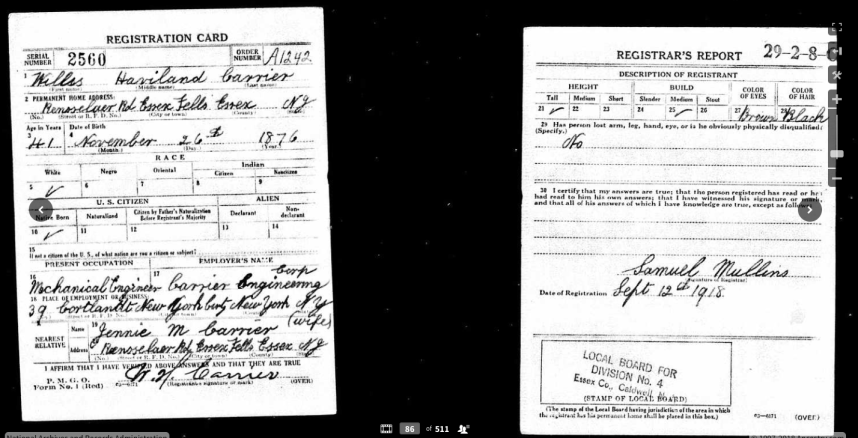 REGISTRATION CARD
SERIAL NUMBER 2560 ORDER NUMBER A1242
1 Willis Haviland Carrier
(First name) (Middle name) (Last name)
2 PERMANENT HOME ADDRESS:
Rensselaer Rd Essex Fells Essex NJ
(No.) (Street or R. F. D. No.) (City or town) (County) (State)
Age in Years Date of Birth
3 41 4 November 26th 1876
(Month.) (Day.) (Year.)
RACE
White Negro Oriental Indian
Citizen Noncitizen
5 ✓ 6 7 8 9
U. S. CITIZEN ALIEN
Native Born Naturalized Citizen by Father's Naturalization Before Registrant's Majority Declarant Non-declarant
10 ✓ 11 12 13 14
15
If not a citizen of the U. S., of what nation are you a citizen or subject?
PRESENT OCCUPATION EMPLOYER'S NAME
16 Mechanical Engineer 17 Carrier Engineering Corp
18 PLACE OF EMPLOYMENT OR BUSINESS:
39 Cortlandt New York City New York NY
(No.) (Street or R. F. D. No.) (City or town) (County) (State)
NEAREST RELATIVE
Name 19 Jennie M Carrier (wife)
Address 20 Rensselaer Rd Essex Fells Essex NJ
(No.) (Street or R. F. D. No.) (City or town) (County) (State)
I AFFIRM THAT I HAVE VERIFIED ABOVE ANSWERS AND THAT THEY ARE TRUE
P. M. G. O.
Form No. 1 (Red) W. H. Carrier
(Registrant's signature or mark) (OVER)
REGISTRAR'S REPORT 29-2-8-
DESCRIPTION OF REGISTRANT
HEIGHT BUILD COLOR OF EYES COLOR OF HAIR
Tall Medium Short Slender Medium Stout
21 ✓ 22 23 24 25 ✓ 26 27 Brown 28 Black
29 Has person lost arm, leg, hand, eye, or is he obviously physically disqualified?
(Specify.)
No
30 I certify that my answers are true; that the person registered has read or has
had read to him his own answers; that I have witnessed his signature or mark,
and that all of his answers of which I have knowledge are true, except as follows:
Samuel Mullins
(Signature of Registrar)
Date of Registration Sept 12th 1918
LOCAL BOARD FOR
DIVISION No. 4
Essex Co., Caldwell, N.
(STAMP OF LOCAL BOARD)
(The stamp of the Local Board having jurisdiction of the area in which
the registrant has his permanent home shall be placed in this box.)
03-6171 (OVER)
86 of 511
National Archives and Records Administration